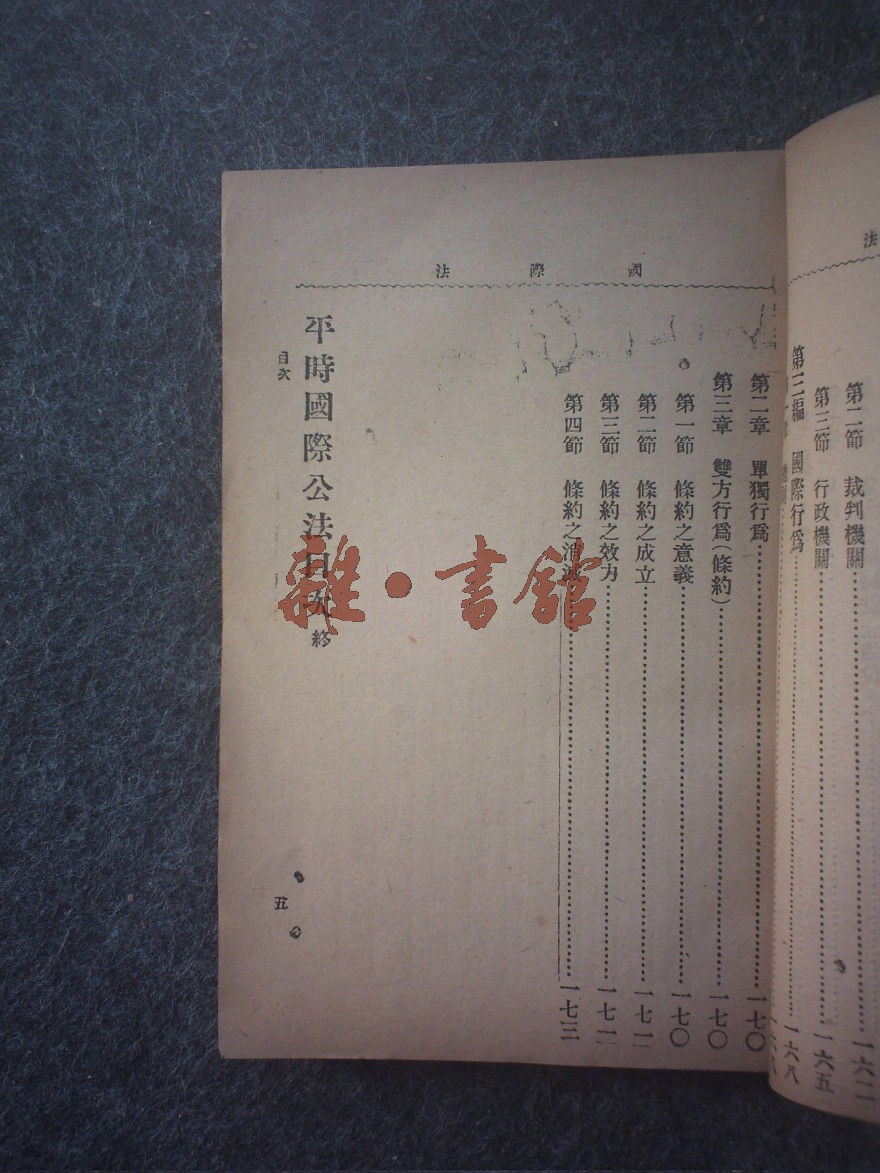 法
第二節　裁判機關……一六二
第三節　行政機關……一六五
第三編　國際行爲……一六八
國際法
第二章　單獨行爲……一七〇
第三章　雙方行爲（條約）……一七〇
第一節　條約之意義……一七〇
第二節　條約之成立……一七一
第三節　條約之效力……一七二
第四節　條約之消滅……一七三
平時國際公法目次終
目次
五
雜·書館